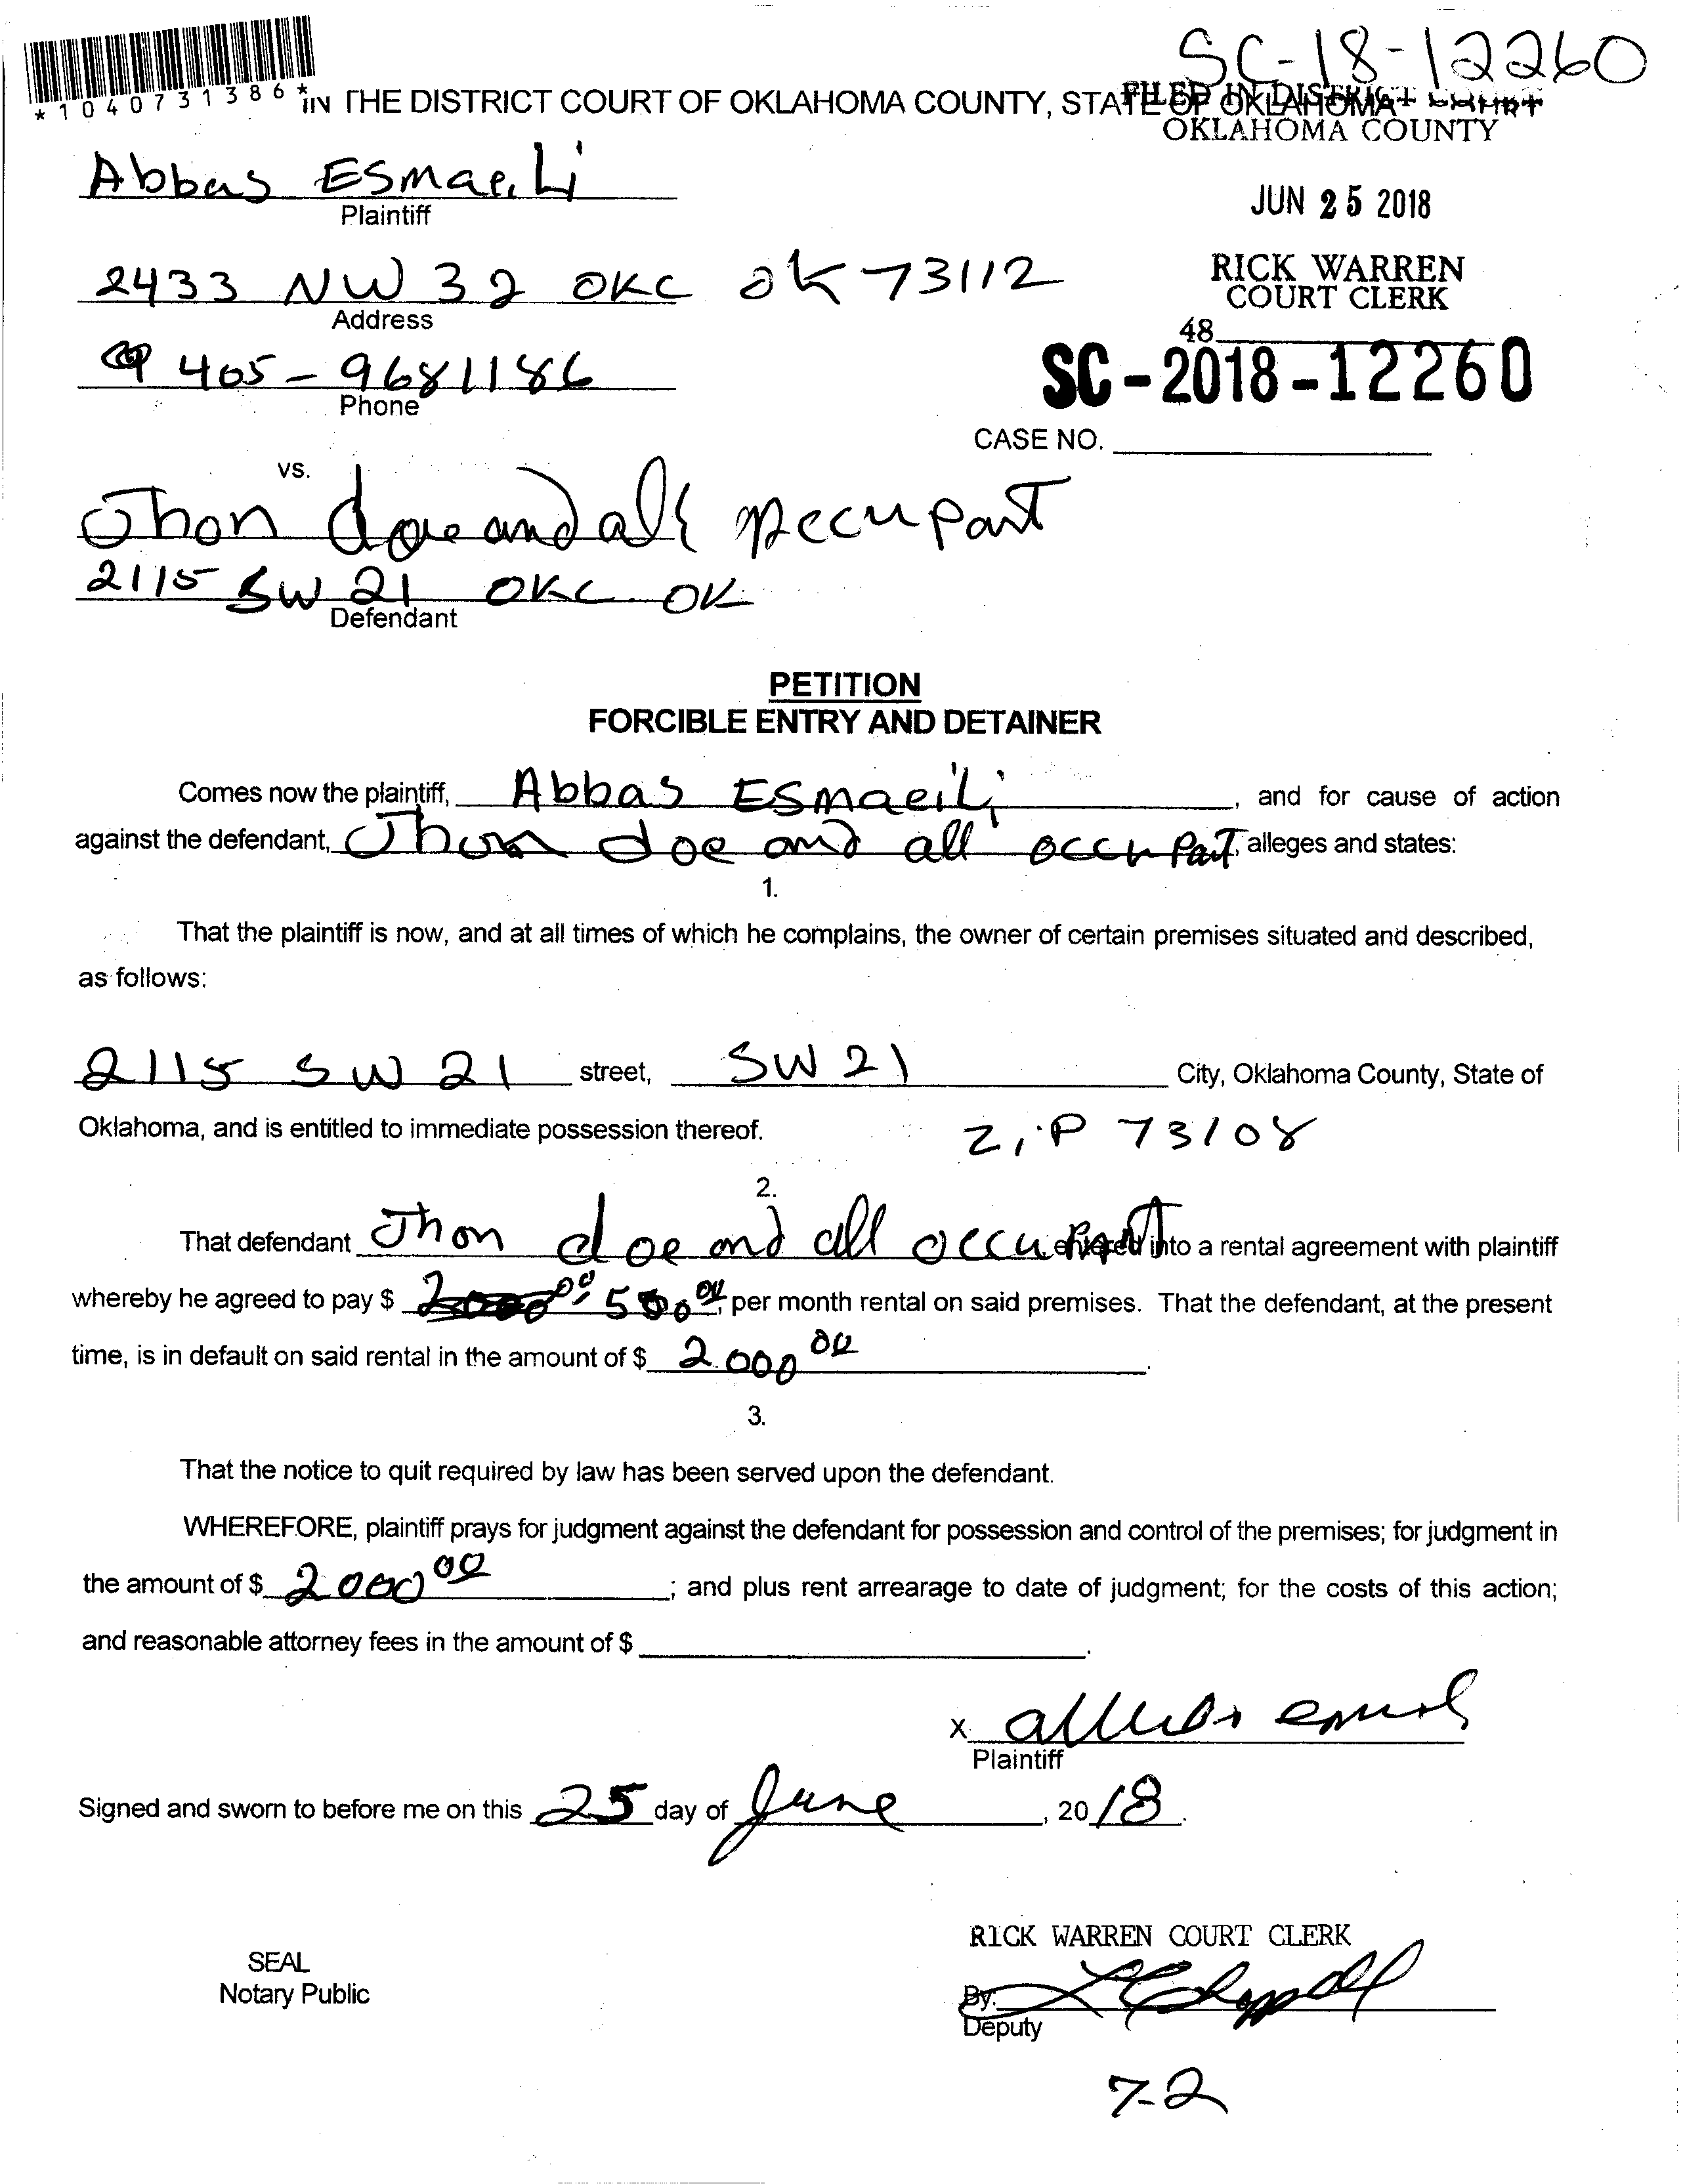 SC-18-12260
*1040731386*
IN THE DISTRICT COURT OF OKLAHOMA COUNTY, STATE OF OKLAHOMA
FILED IN DISTRICT COURT
OKLAHOMA COUNTY
Abbas ESmaeiLi
Plaintiff
JUN 25 2018
2433 NW 32 OKC OK 73112
Address
RICK WARREN
COURT CLERK
48
405-9681186
Phone
SC-2018-12260
CASE NO.
vs.
Jhon doe and all occupant
2115 SW 21 OKC OK
Defendant
PETITION
FORCIBLE ENTRY AND DETAINER
Comes now the plaintiff, Abbas ESmaeiLi, and for cause of action
against the defendant, Jhon doe and all occupant, alleges and states:
1.
That the plaintiff is now, and at all times of which he complains, the owner of certain premises situated and described,
as follows:
2115 SW 21 street, SW 21 City, Oklahoma County, State of
Oklahoma, and is entitled to immediate possession thereof. ZiP 73108
2.
That defendant Jhon doe and all occupant entered into a rental agreement with plaintiff
whereby he agreed to pay $ 500 00, per month rental on said premises. That the defendant, at the present
time, is in default on said rental in the amount of $ 2000 00.
3.
That the notice to quit required by law has been served upon the defendant.
WHEREFORE, plaintiff prays for judgment against the defendant for possession and control of the premises; for judgment in
the amount of $ 2000 00; and plus rent arrearage to date of judgment; for the costs of this action;
and reasonable attorney fees in the amount of $ .
x
Plaintiff
Signed and sworn to before me on this 25 day of June, 2018.
RICK WARREN COURT CLERK
SEAL
Notary Public
By:
Deputy
7-2